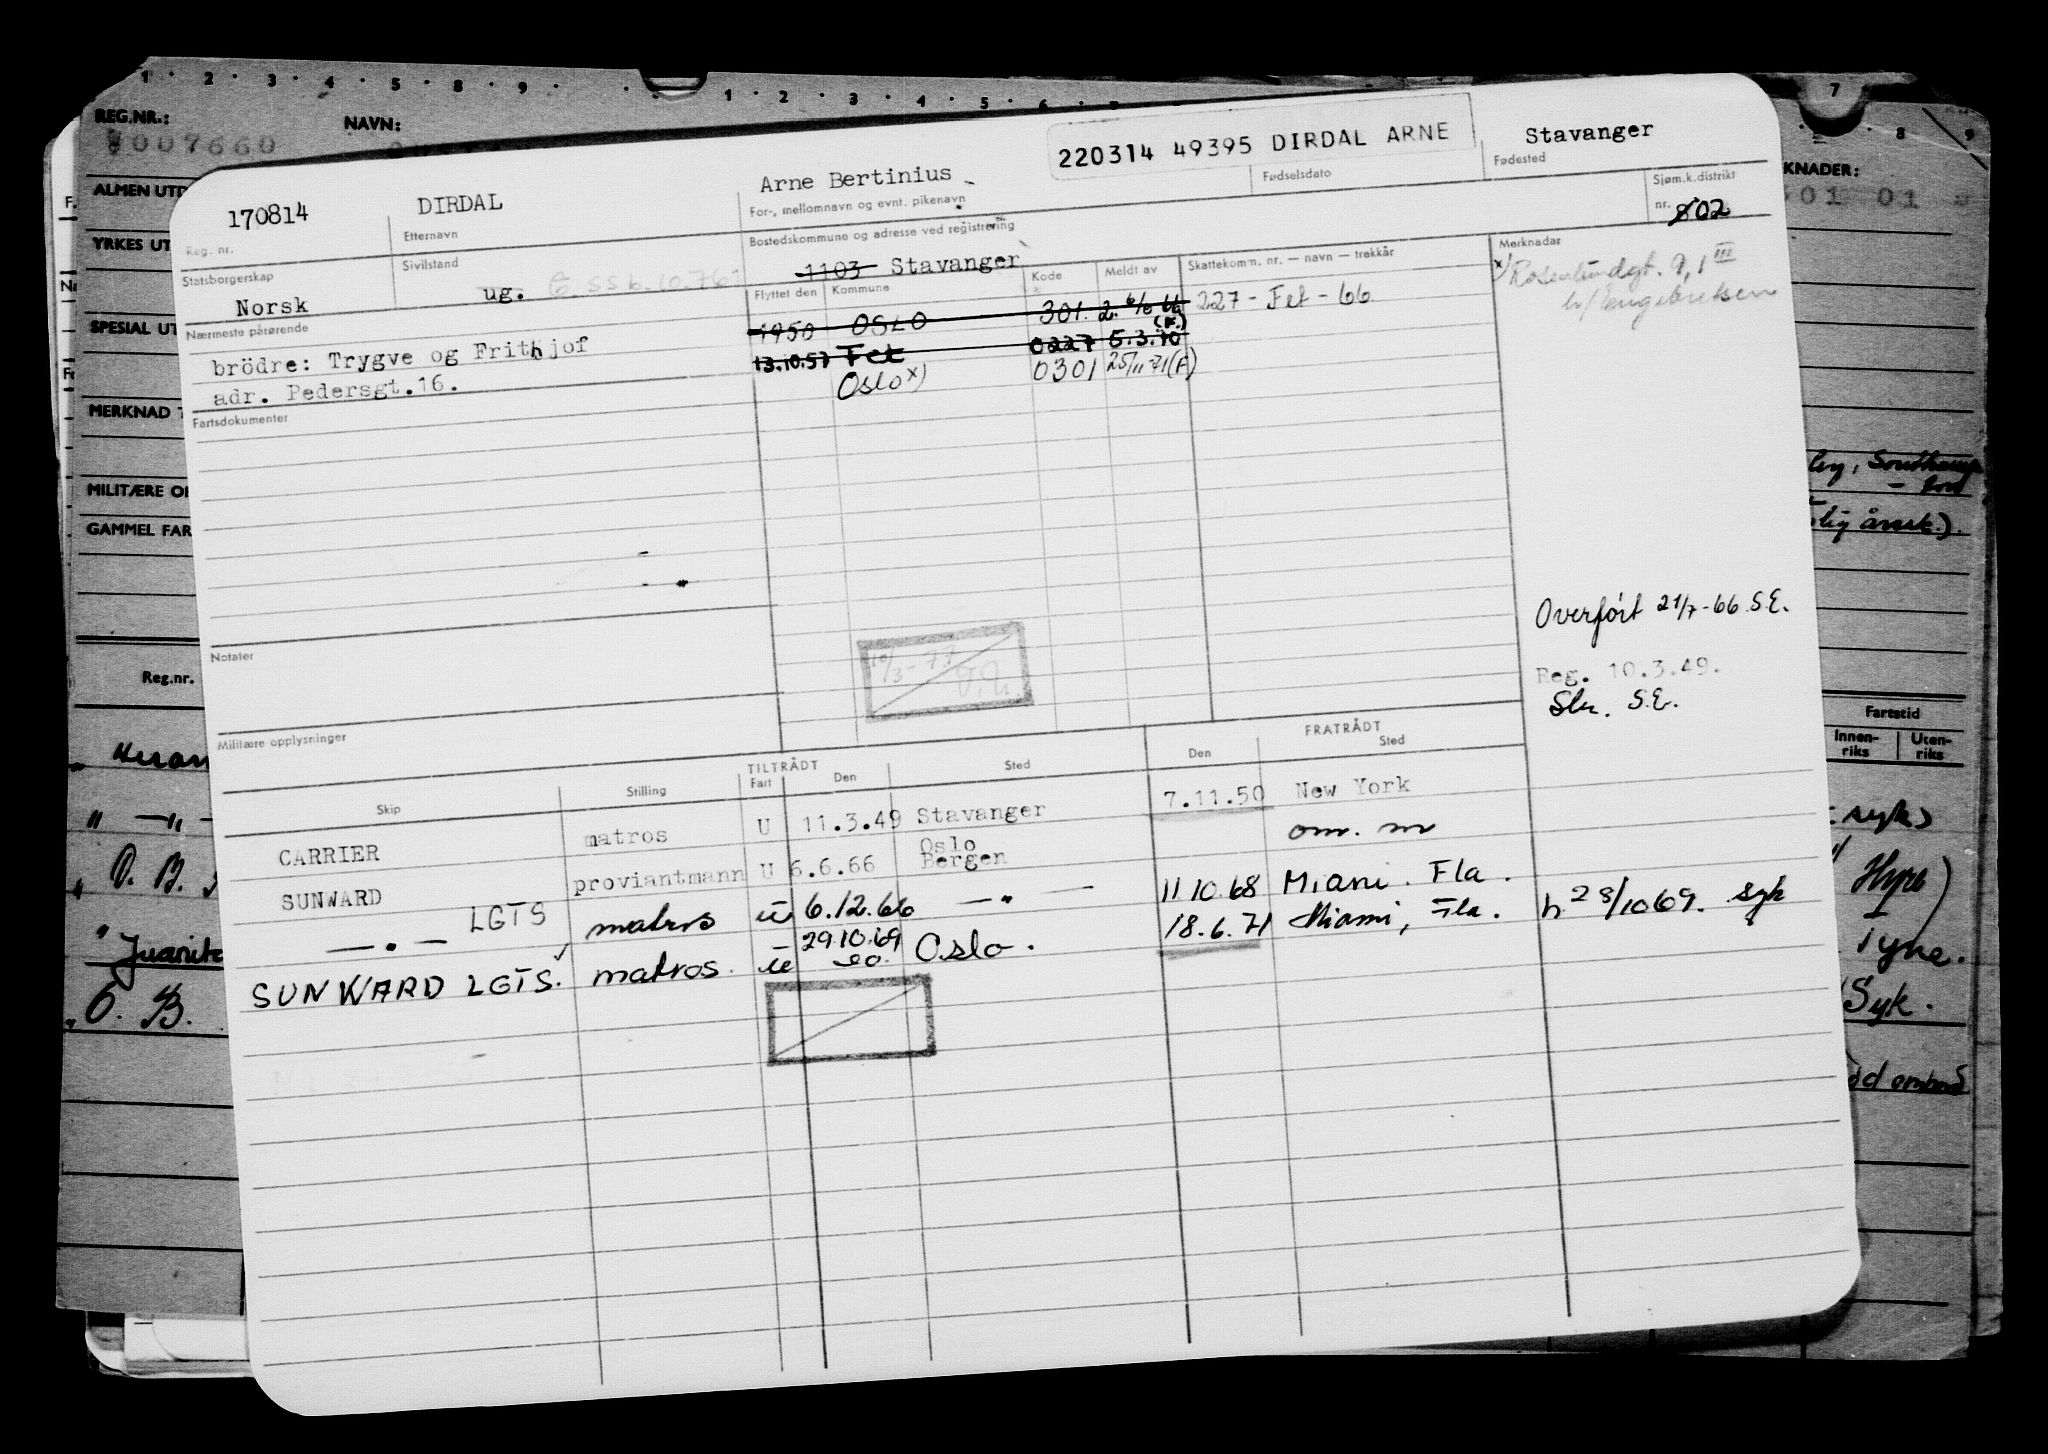 1 · 2 · 3 · 4 · 5 · 8 · 9 · 1 · 2 · 3 · 4 · 5 · 6 7 8 9
REG.NR.: NAVN:
007660
ALMEN UTD
YRKES UT
SPESIAL UT
MERKNAD
MILITÆRE OP
GAMMEL FAR
Reg.nr.
KNADER:
01 01
220314 49395 DIRDAL ARNE
Stavanger
Fødselsdato Fødested
170814 DIRDAL Arne Bertinius
Reg. nr. Etternavn For-, mellomnavn og evnt. pikenavn
Sjøm.k.distrikt
nr. 802
Statsborgerskap Sivilstand Bostedskommune og adresse ved registrering
Norsk ug. 1103 Stavanger
Flyttet den Kommune Kode Meldt av Skattekomm. nr. — navn — trekkår Merknader
Nærmeste pårørende
brödre: Trygve og Frithjof
adr. Pedersgt.16.
1950 OSLO 301. 227 - Fet - 66
13.10.57 Fet 0227 5.3.70 (F.)
Oslo x) 0301 25/11-71 (F)
x) Rosenlundgt. 9, I III
v/Engebretsen
Fartsdokumenter
Overført 21/7-66 S.E.
Reg. 10.3.49.
S.E.
Notater
10/3-77
Militære opplysninger
TILTRÅDT FRATRÅDT
Skip Stilling Fart Den Sted Den Sted
CARRIER matros U 11.3.49 Stavanger 7.11.50 New York
SUNWARD proviantmann U 6.6.66 Oslo Bergen om. m
— " — LGTS matros u 6.12.66 — " — 11 10.68 Miami. Fla.
SUNWARD LGTS. matros. u 29.10.69 Oslo. 18.6.71 Miami, Fla. h 28/10 69. syk
Fartstid
Innen-
riks
Uten-
riks
Juanita
O. B.
O. B.
syk)
Hyre)
Tyne.
Syk.